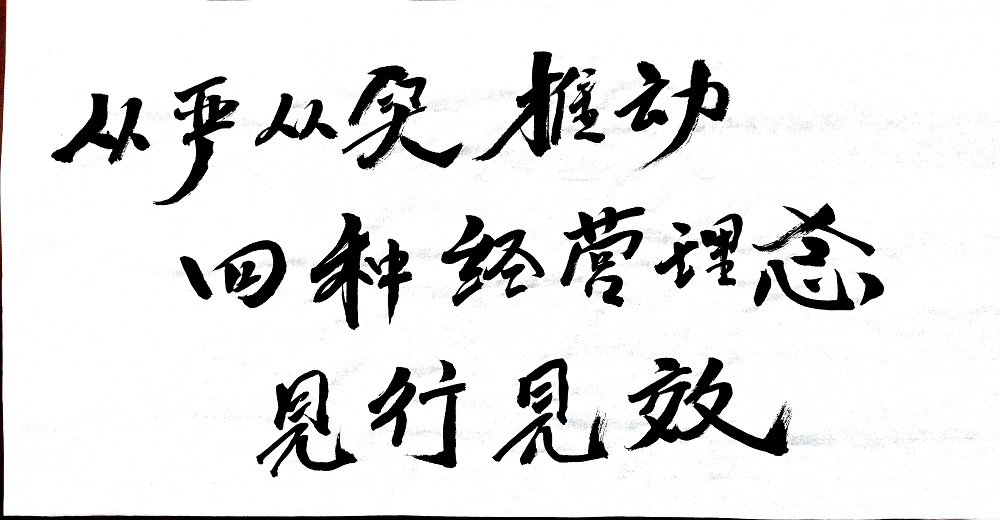 从严从实推动
四种经营理念
见行见效